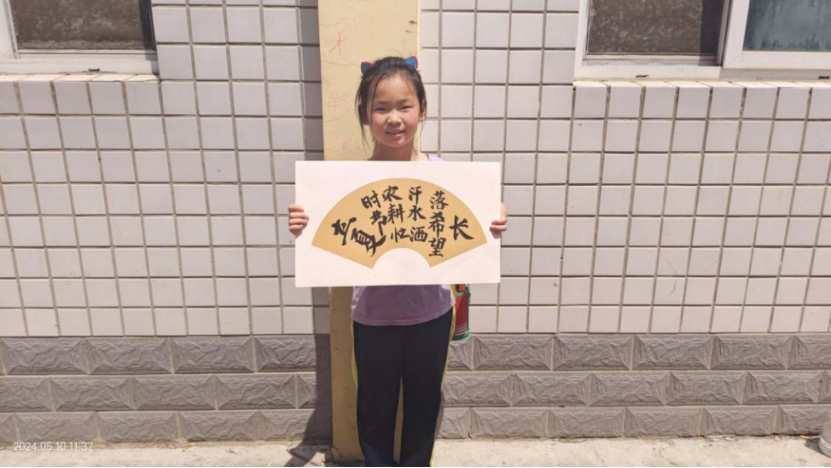 立夏
时节
农耕忙
汗水洒
落希望
长
2024.05.10 11:37